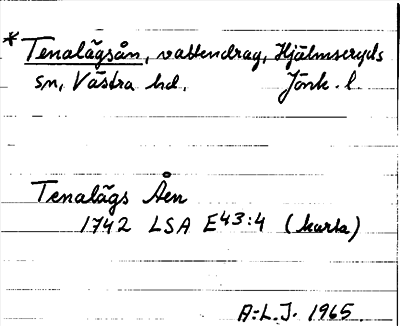 * Tenalägsån, vattendrag, Hjälmseryds
sn, Västra hd, Jönk. l.
Tenalägs Åen
1742 LSA E43:4 (karta)
A:L.J. 1965